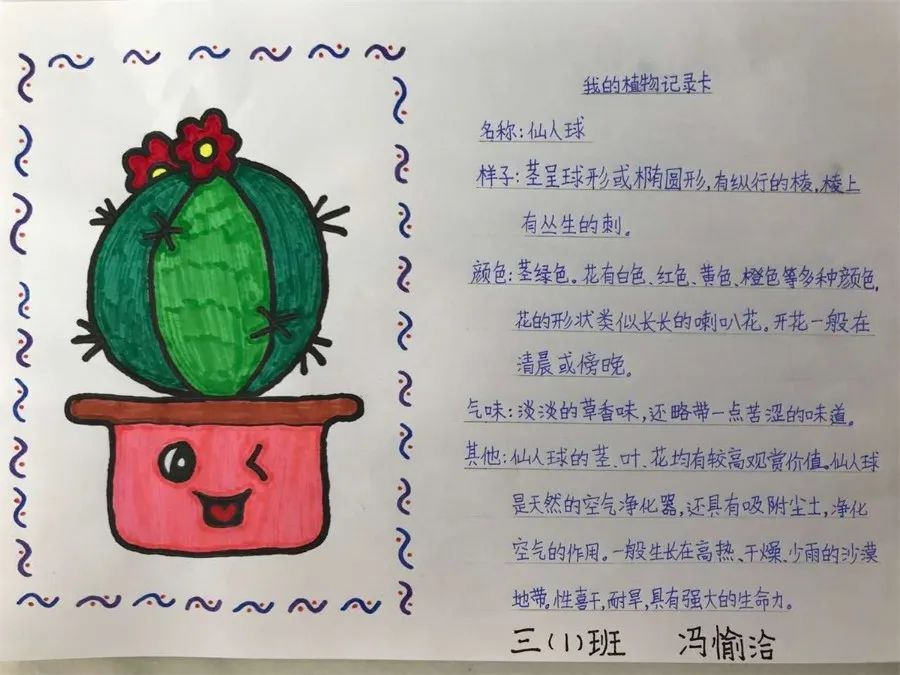 我的植物记录卡
名称:仙人球
样子:茎呈球形或椭圆形,有纵行的棱,棱上
有丛生的刺。
颜色:茎绿色。花有白色、红色、黄色、橙色等多种颜色,
花的形状类似长长的喇叭花。开花一般在
清晨或傍晚。
气味:淡淡的草香味,还略带一点苦涩的味道。
其他:仙人球的茎、叶、花均有较高观赏价值。仙人球
是天然的空气净化器,还具有吸附尘土,净化
空气的作用。一般生长在高热、干燥、少雨的沙漠
地带。性喜干,耐旱,具有强大的生命力。
三(1)班 冯愉洽